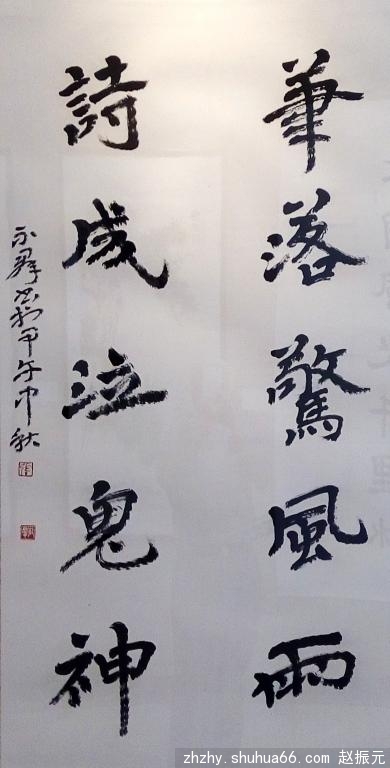 筆落驚風雨
詩成泣鬼神
甲午中秋
zhzhy.shuhua66.com 赵振元